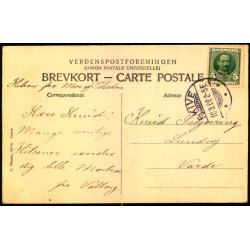 VERDENSPOSTFORENINGEN
(UNION POSTALE UNIVERSELLE)
BREVKORT – CARTE POSTALE
Correspondance
Adresse
DANMARK
5
SKIVE
Hilsen fra Mor og
Kære Knud!
Mange venlige
Hilsener sendes
dig lille
fra Valborg.
Knud
Lundvej
Varde